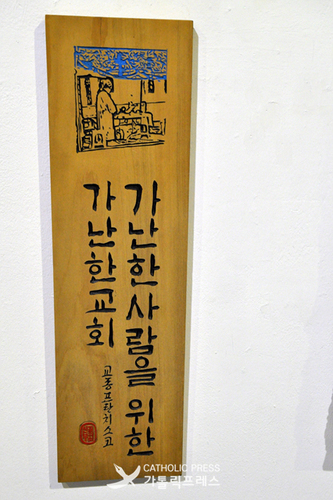 가난한사람을 위한
가난한교회
교종프란치스코
CATHOLIC PRESS
가톨릭프레스